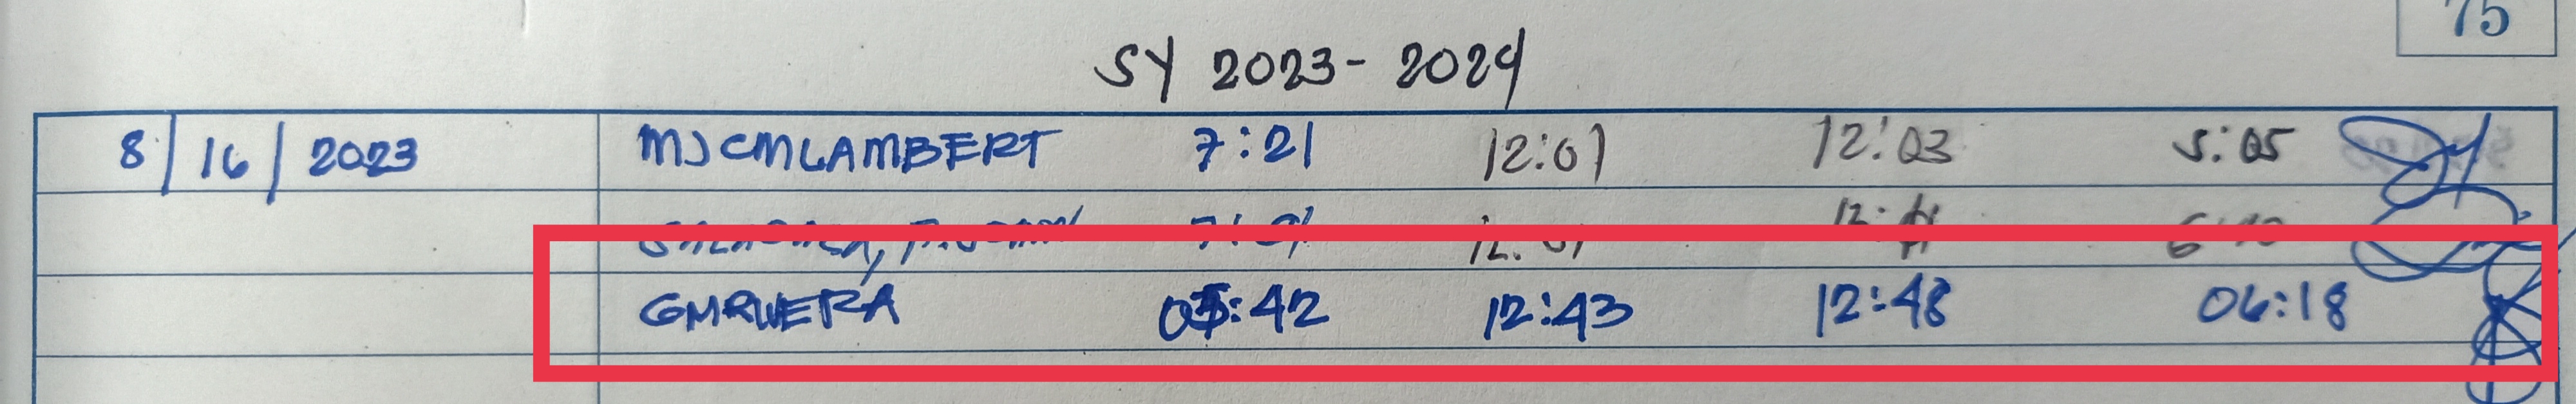 75
SY 2023-2024
8/16/2023 MJCMLAMBERT 7:21 12:01 12:03 5:05
12:01
GMRIVERA 05:42 12:43 12:48 06:18